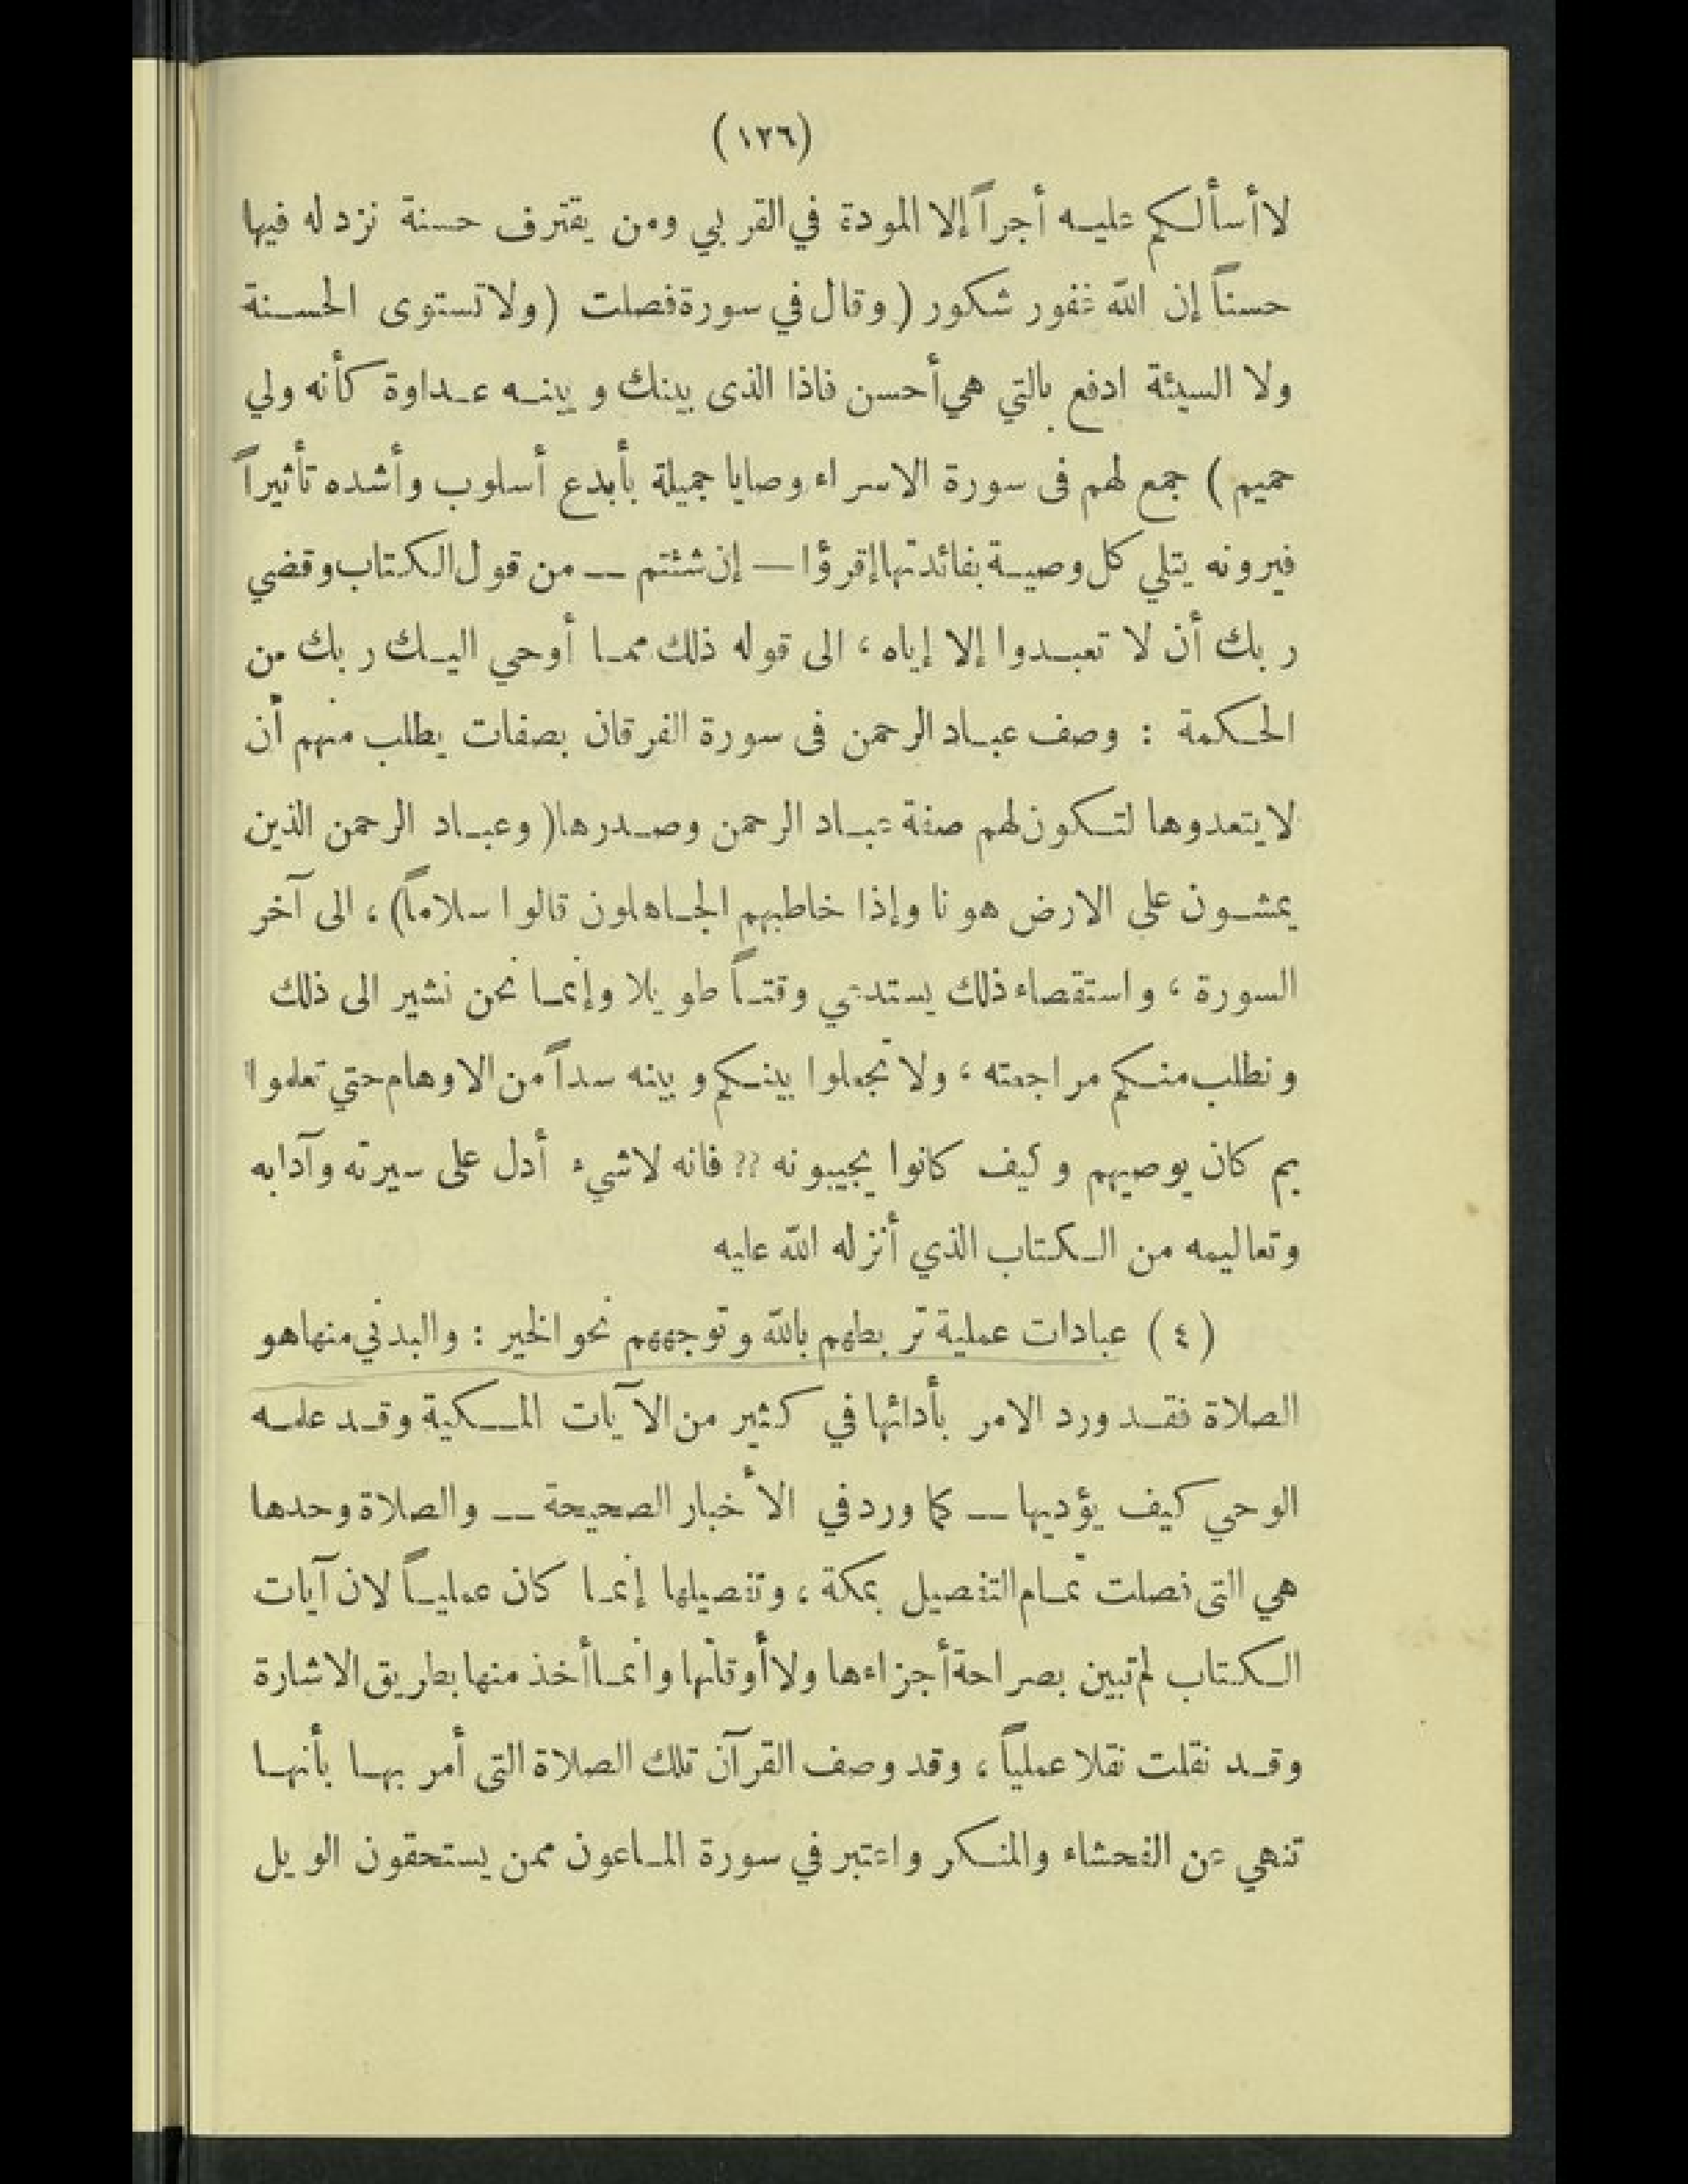 (١٢٦)
لا أسألكم عليه أجراً إلا المودة في القربي ومن يقترف حسنة نزد له فيها
حسناً إن الله غفور شكور ) وقال في سورة فصلت ( ولا تستوى الحسنة
ولا السيئة ادفع بالتي هي أحسن فاذا الذى بينك وبينه عداوة كأنه ولي
حميم ) جمع لهم فى سورة الاسراء وصايا جميلة بأبدع أسلوب وأشده تأثيراً
فيرونه يتلي كل وصية بفائدتها إقرؤا — إن شئتم — من قول الكتاب وقضي
ربك أن لا تعبدوا إلا إياه ، الى قوله ذلك مما أوحي اليك ربك من
الحكمة : وصف عباد الرحمن فى سورة الفرقان بصفات يطلب منهم أن
لا يتعدوها لتكون لهم صفة عباد الرحمن وصدرها ( وعباد الرحمن الذين
يمشون على الارض هونا وإذا خاطبهم الجاهلون قالوا سلاماً ) ، الى آخر
السورة ، واستقصاء ذلك يستدعي وقتاً طويلا وإنما نحن نشير الى ذلك
ونطلب منكم مراجعته ، ولا تجعلوا بينكم وبينه سداً من الاوهام حتي تعلموا
بم كان يوصيهم وكيف كانوا يجيبونه ؟؟ فانه لا شيء أدل على سيرته وآدابه
وتعاليمه من الكتاب الذي أنزله الله عليه
(٤) عبادات عملية تربطهم بالله وتوجههم نحو الخير : والبدني منها هو
الصلاة فقد ورد الامر بأدائها في كثير من الآيات المكية وقد علمه
الوحي كيف يؤديها — كما ورد في الأخبار الصحيحة — والصلاة وحدها
هي التى فصلت تمام التفصيل بمكة ، وتفصيلها إنما كان عملياً لان آيات
الكتاب لم تبين بصراحة أجزاءها ولا أوقاتها وانما أخذ منها بطريق الاشارة
وقد نقلت نقلا عملياً ، وقد وصف القرآن تلك الصلاة التى أمر بها بأنها
تنهي عن الفحشاء والمنكر واعتبر في سورة الماعون ممن يستحقون الويل